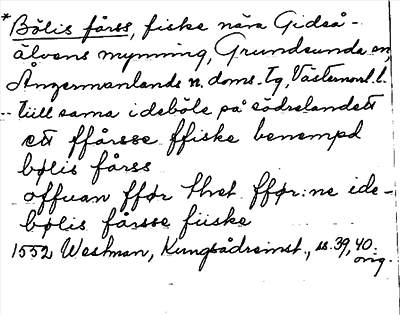 *Bölis fårss, fiske nära Gideå-
älvens mynning, Grundsunda sn,
Ångermanlands n. doms. tg, Västernorrl. l.
.. tiill sama ideböle på södrelandett
ett ffårsse ffiske benempd
bølis fårss
offuan ffør thet ffør:ne ide-
bølis fårsse fiiske
1552 Westman, Kungsådreinst., ss. 39, 40.
orig.